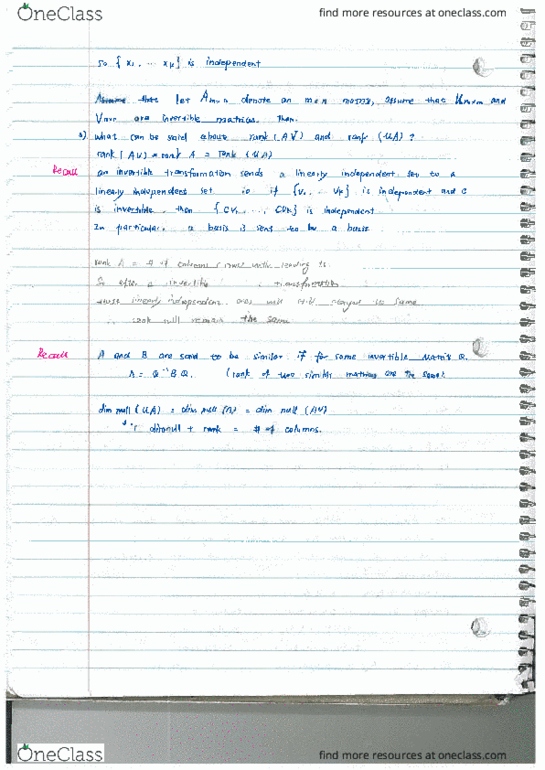 OneClass
find more resources at oneclass.com
so { x₁, ... xₖ } is independent
let Aₘₓₙ denote an mxn matrix, assume that Uₘₓₘ and
Vₙₓₙ are invertible matrices. Then.
what can be said about rank (AV) and rank (UA) ?
rank (AV) = rank A = rank (UA)
Recall
an invertible transformation sends a linearly independent set to a
linearly independent set. ie if { v₁ ... vₖ } is independent and C
is invertible, then { CV₁, ..., CVₖ } is independent
In particular, a basis is sent to be a basis.
rank A = # of columns / rows with leading 1s.
So after a invertible transformation
those linearly independent will still remain the same
∴ rank will remain the same
Recall
A and B are said to be similar if for some invertible matrix Q.
A = Q⁻¹ B Q. (rank of two similar matrices are the same)
dim null (UA) = dim null (A) = dim null (AV)
∵ dim null + rank = # of columns.
OneClass
find more resources at oneclass.com